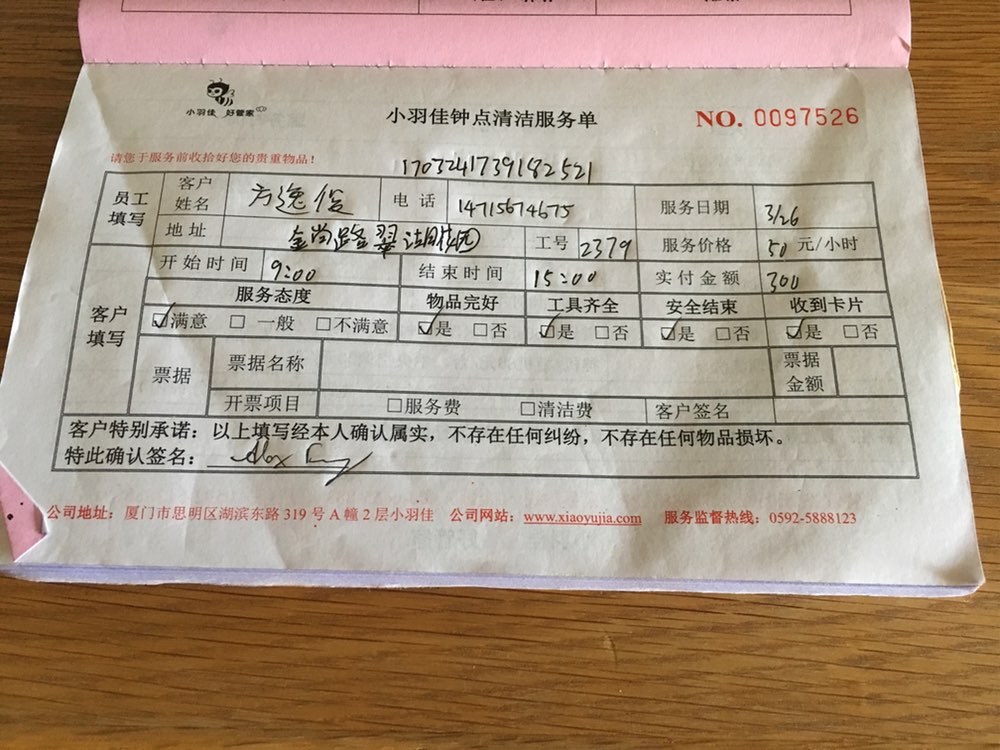 小羽佳 好管家
小羽佳钟点清洁服务单
NO. 0097526
请您于服务前收拾好您的贵重物品!
1703241739182521
员工填写 客户姓名 方逸俊 电话 14715674675 服务日期 3/26
地址 金尚路翠湖花园 工号 2379 服务价格 50 元/小时
客户填写 开始时间 9:00 结束时间 15:00 实付金额 300
服务态度 物品完好 工具齐全 安全结束 收到卡片
☑满意 □一般 □不满意 ☑是 □否 ☑是 □否 ☑是 □否 ☑是 □否
票据 票据名称 票据金额
开票项目 □服务费 □清洁费 客户签名
客户特别承诺：以上填写经本人确认属实，不存在任何纠纷，不存在任何物品损坏。
特此确认签名： Alex
公司地址：厦门市思明区湖滨东路 319 号 A 幢 2 层小羽佳 公司网站：www.xiaoyujia.com 服务监督热线：0592-5888123